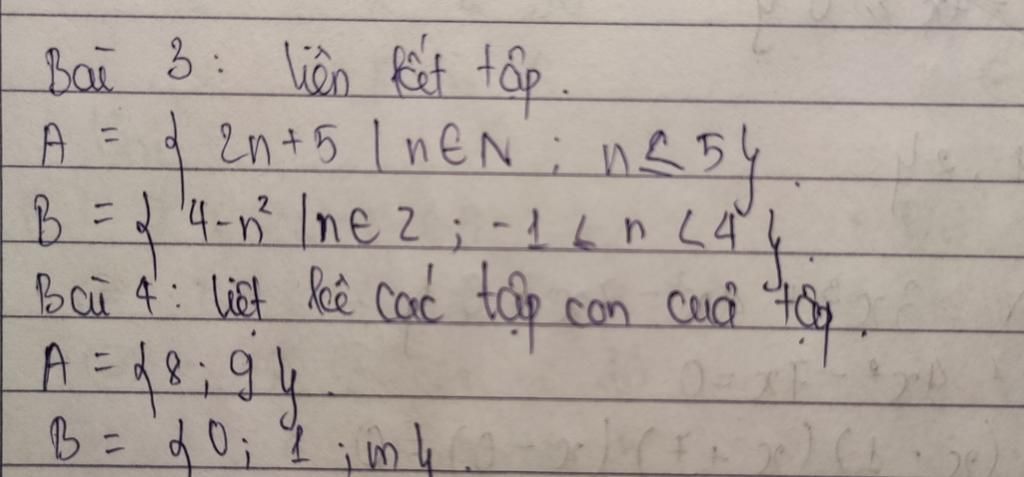 Bài 3: liên kết tập.
A = { 2n+5 | n ∈ N ; n ≤ 5 }.
B = { 4-n² | n ∈ Z ; -1 < n < 4 }.
Bài 4: liệt kê các tập con của tập.
A = { 8 ; 9 }.
B = { 0 ; 1 ; m }.